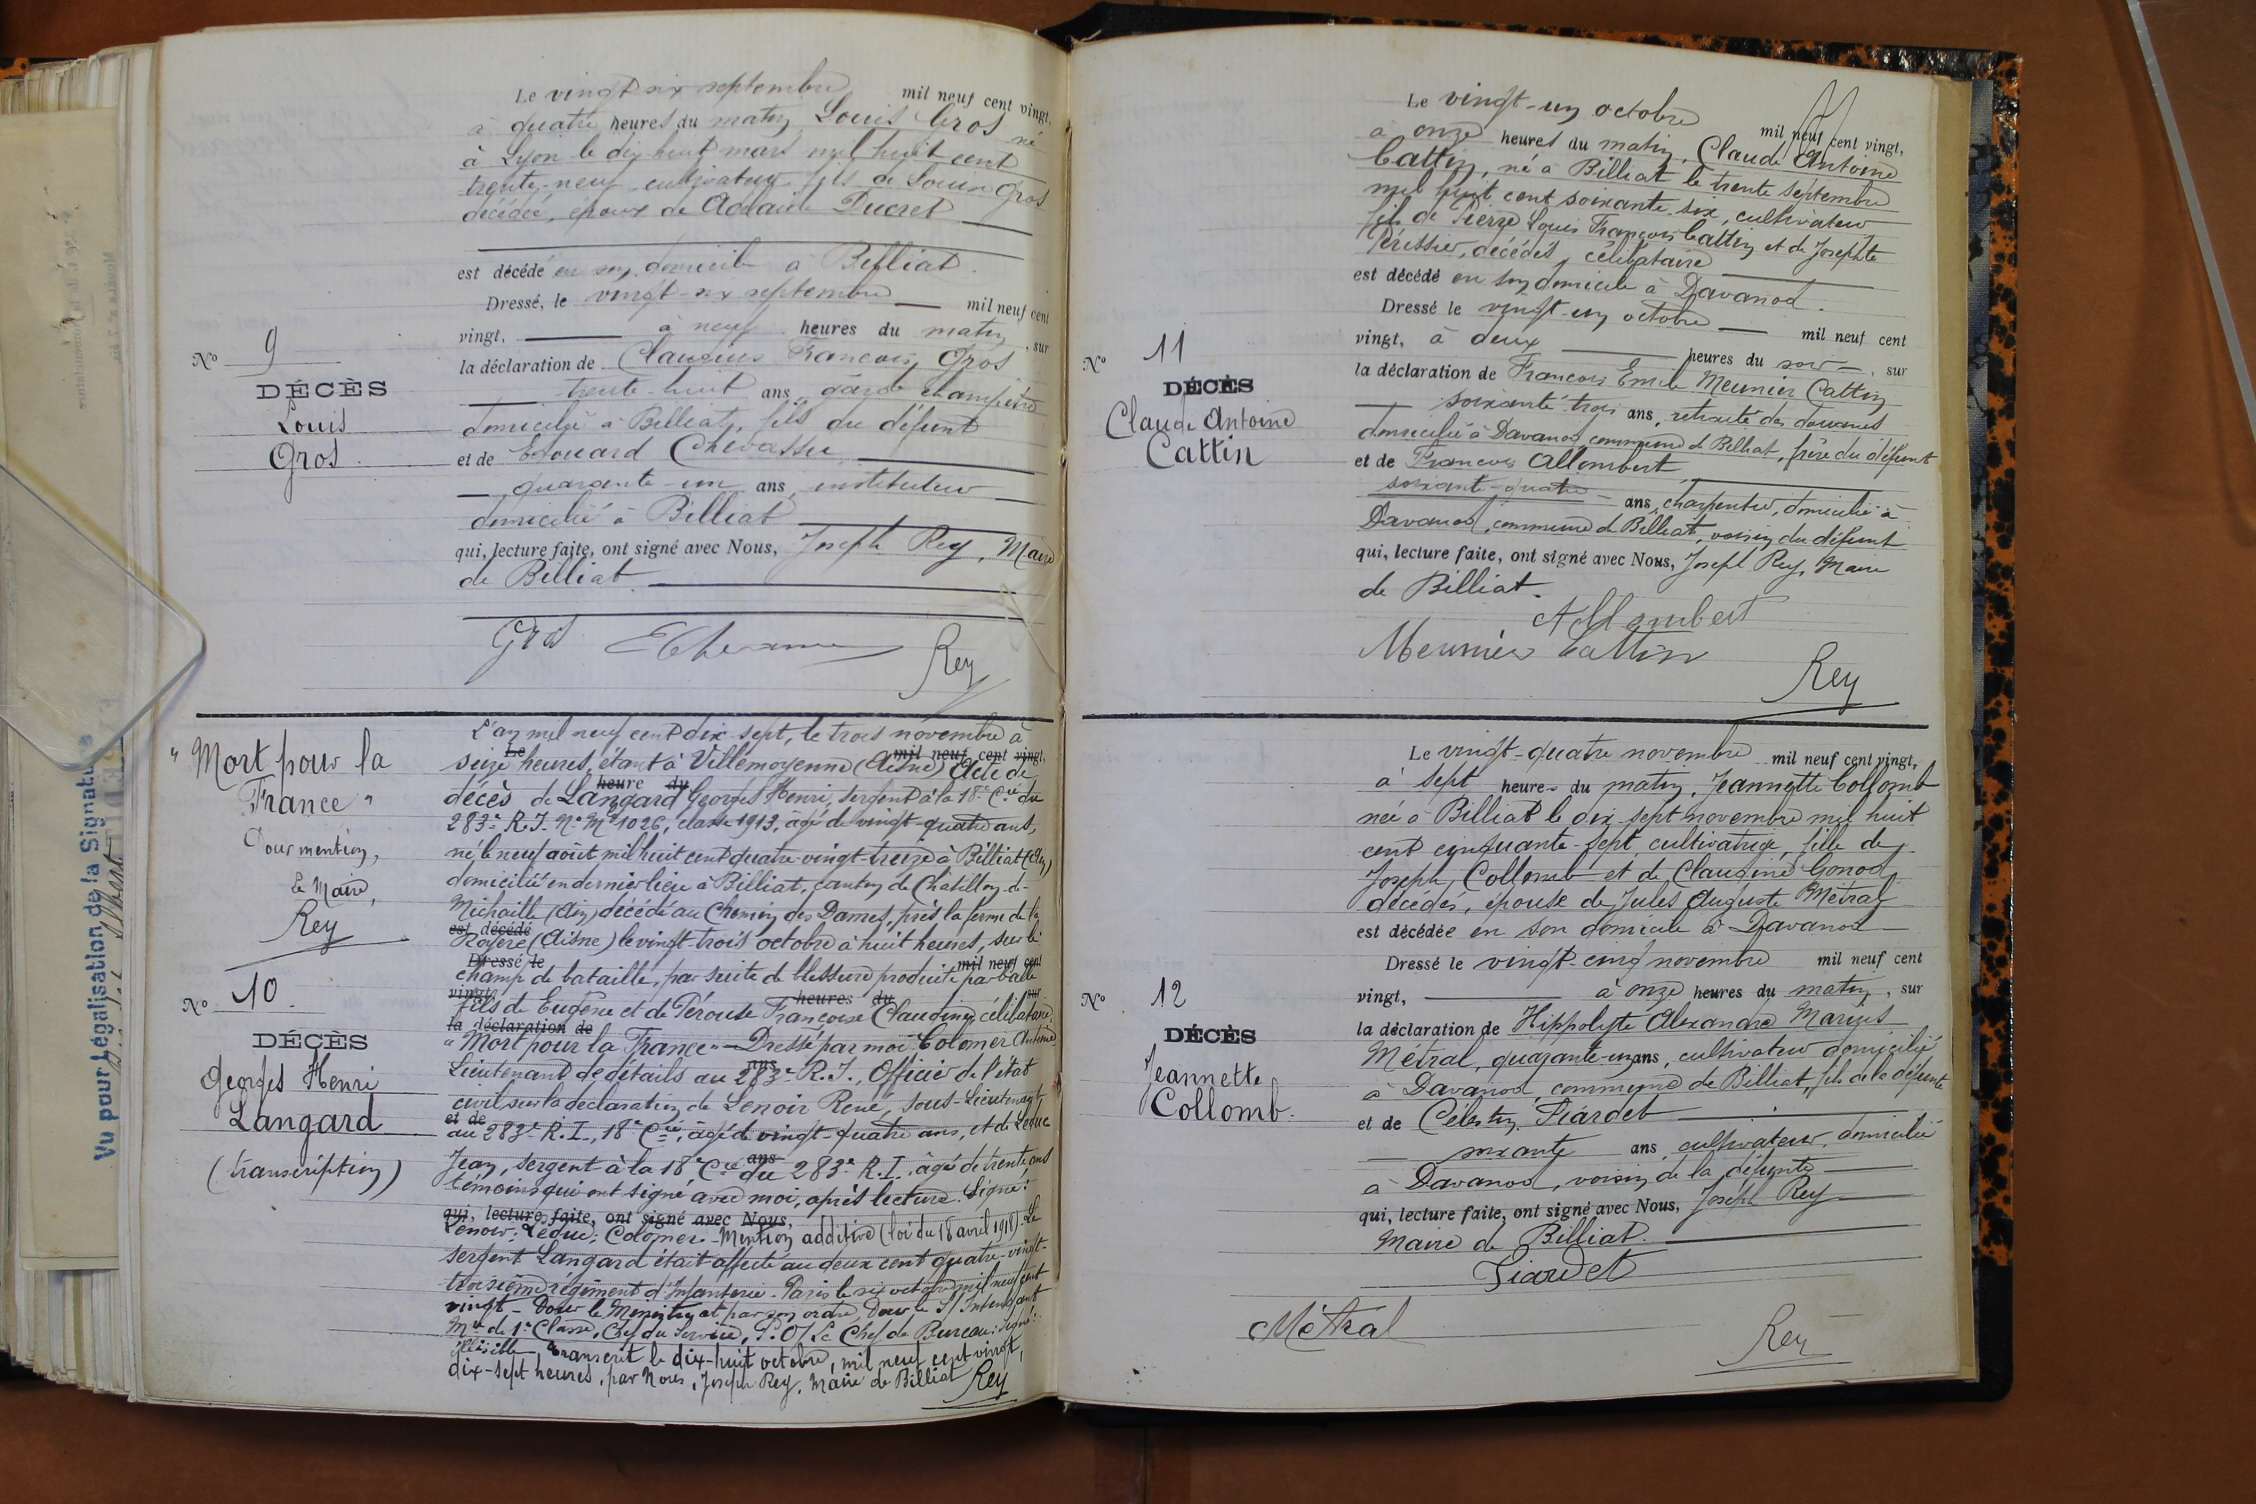 Le vingt-six septembre mil neuf cent vingt,
à quatre heures du matin, Louis Gros né
à Lyon le dix-huit mars mil huit cent
trente-neuf cultivateur fils de Louise Gros
décédée, époux de Adélaïde Ducret
est décédé en son domicile à Billiat.
Dressé, le vingt-six septembre mil neuf cent
vingt, à neuf heures du matin, sur
la déclaration de Claudius François Gros
trente-huit ans, garde champêtre
domicilié à Billiat, fils du défunt
et de Edouard Chevassu
quarante-un ans, instituteur
domicilié à Billiat
qui, lecture faite, ont signé avec Nous, Joseph Rey, Maire
de Billiat.
Gros Rey
No 9
DÉCÈS
Louis
Gros
"Mort pour la
France"
Pour mention,
Le Maire,
Rey
No 10.
DÉCÈS
Georges Henri
Langard
(transcription)
L'an mil neuf cent dix-sept, le trois novembre à
Le mil neuf cent vingt,
seize heures, étant à Villemoyenne (Aisne) Acte de
heure du
décès de Langard Georges Henri, sergent à la 18e Cie du
283e R.I. No Mle 1026, classe 1913, âgé de vingt-quatre ans,
né le neuf août mil huit cent quatre-vingt-treize à Billiat (Ain)
domicilié en dernier lieu à Billiat, canton de Châtillon-de-
Michaille (Ain) décédé au Chemin des Dames, près la ferme de la
est décédé
Royère (Aisne) le vingt-trois octobre à huit heures, sur le
Dressé le mil neuf cent
champ de bataille, par suite de blessure produite par balle
vingt, heures du sur
fils de Eugène et de Pérouse Françoise Claudine, célibataire.
la déclaration de
"Mort pour la France" - Dressé par moi Colomer Antoine
ans
Lieutenant de détails au 283e R.I., Officier de l'état
civil, sur la déclaration de Lenoir René, sous-Lieutenant
et de
au 283e R.I., 18e Cie, âgé de vingt-quatre ans, et de Leduc
ans
Jean, sergent à la 18e Cie du 283e R.I. âgé de trente ans
témoins qui ont signé avec moi, après lecture. Signé:
qui, lecture faite, ont signé avec Nous,
Lenoir; Leduc; Colomer. Mention additive (loi du 18 avril 1918). Le
sergent Langard était affecté au deux cent quatre-vingt-
troisième régiment d'Infanterie. Paris le six octobre mil neuf cent
vingt - Pour le Ministre et par son ordre, Pour le S/ Intendant
Mre de 1e Classe, Chef du Service, P.O/ Le Chef de Bureau: Signé:
illisible. Transcrit le dix-huit octobre, mil neuf cent vingt,
dix-sept heures, par Nous, Joseph Rey, Maire de Billiat Rey
Le vingt-un octobre mil neuf cent vingt,
à onze heures du matin, Claude Antoine
Cattin, né à Billiat le trente septembre
mil huit cent soixante-six, cultivateur
fils de Pierre Louis François Cattin et de Josephte
Périssier, décédés, célibataire
est décédé en son domicile à Davanod.
Dressé le vingt-un octobre mil neuf cent
vingt, à deux heures du soir, sur
la déclaration de François Emile Meunier Cattin
soixante-trois ans, retraité des douanes
domicilié à Davanod commune de Billiat, frère du défunt
et de François Allombert
soixante-quatre ans, charpentier, domicilié à
Davanod, commune de Billiat, voisin du défunt
qui, lecture faite, ont signé avec Nous, Joseph Rey, Maire
de Billiat.
Allombert
Meunier Cattin
Rey
No 11
DÉCÈS
Claude Antoine
Cattin
Le vingt-quatre novembre mil neuf cent vingt,
à sept heures du matin, Jeannette Collomb
née à Billiat le dix-sept novembre mil huit
cent cinquante-sept cultivatrice, fille de
Joseph Collomb et de Claudine Gonod
décédés, épouse de Jules Auguste Métral
est décédée en son domicile à Davanod
Dressé le vingt-cinq novembre mil neuf cent
vingt, à onze heures du matin, sur
la déclaration de Hippolyte Alexandre Marius
Métral, quarante-un ans, cultivateur domicilié
à Davanod, commune de Billiat, fils de la défunte
et de Célestin Fiardet
soixante ans, cultivateur, domicilié
à Davanod, voisin de la défunte
qui, lecture faite, ont signé avec Nous, Joseph Rey
Maire de Billiat.
Fiardet
Métral
Rey
No 12
DÉCÈS
Jeannette
Collomb.
Vu pour Légalisation de la Signature